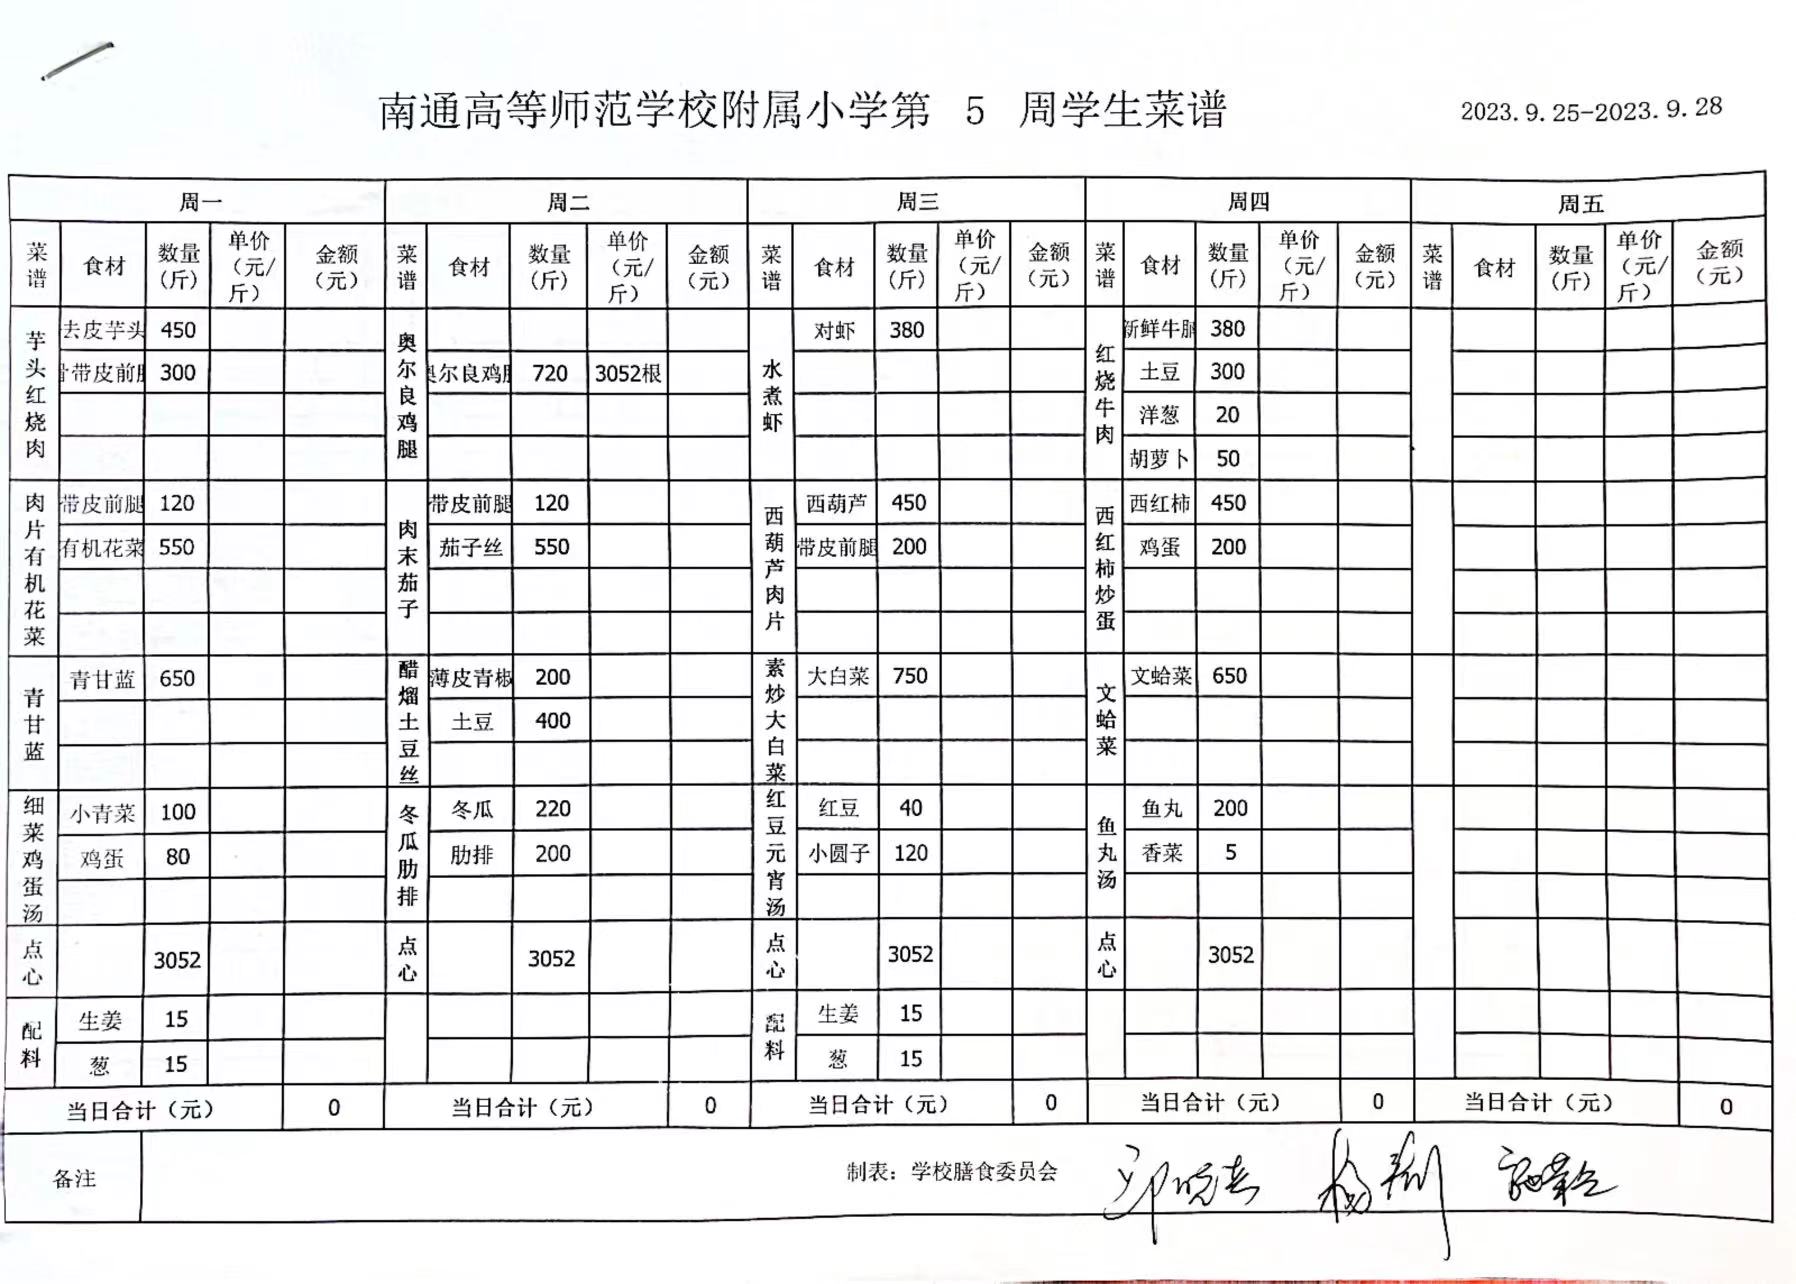 南通高等师范学校附属小学第 5 周学生菜谱 2023.9.25-2023.9.28
周一 周二 周三 周四 周五
菜谱 食材 数量(斤) 单价(元/斤) 金额(元) 菜谱 食材 数量(斤) 单价(元/斤) 金额(元) 菜谱 食材 数量(斤) 单价(元/斤) 金额(元) 菜谱 食材 数量(斤) 单价(元/斤) 金额(元) 菜谱 食材 数量(斤) 单价(元/斤) 金额(元)
芋头红烧肉 去皮芋头 450 奥尔良鸡腿 水煮虾 对虾 380 红烧牛肉 新鲜牛腩 380
带皮前腿 300 奥尔良鸡腿 720 3052根 土豆 300
洋葱 20
胡萝卜 50
肉片有机花菜 带皮前腿 120 肉末茄子 带皮前腿 120 西葫芦肉片 西葫芦 450 西红柿炒蛋 西红柿 450
有机花菜 550 茄子丝 550 带皮前腿 200 鸡蛋 200
青甘蓝 青甘蓝 650 醋熘土豆丝 薄皮青椒 200 素炒大白菜 大白菜 750 文蛤菜 文蛤菜 650
土豆 400
细菜鸡蛋汤 小青菜 100 冬瓜肋排 冬瓜 220 红豆元宵汤 红豆 40 鱼丸汤 鱼丸 200
鸡蛋 80 肋排 200 小圆子 120 香菜 5
点心 3052 点心 3052 点心 3052 点心 3052
配料 生姜 15 配料 生姜 15
葱 15 葱 15
当日合计（元） 0 当日合计（元） 0 当日合计（元） 0 当日合计（元） 0 当日合计（元） 0
备注 制表：学校膳食委员会